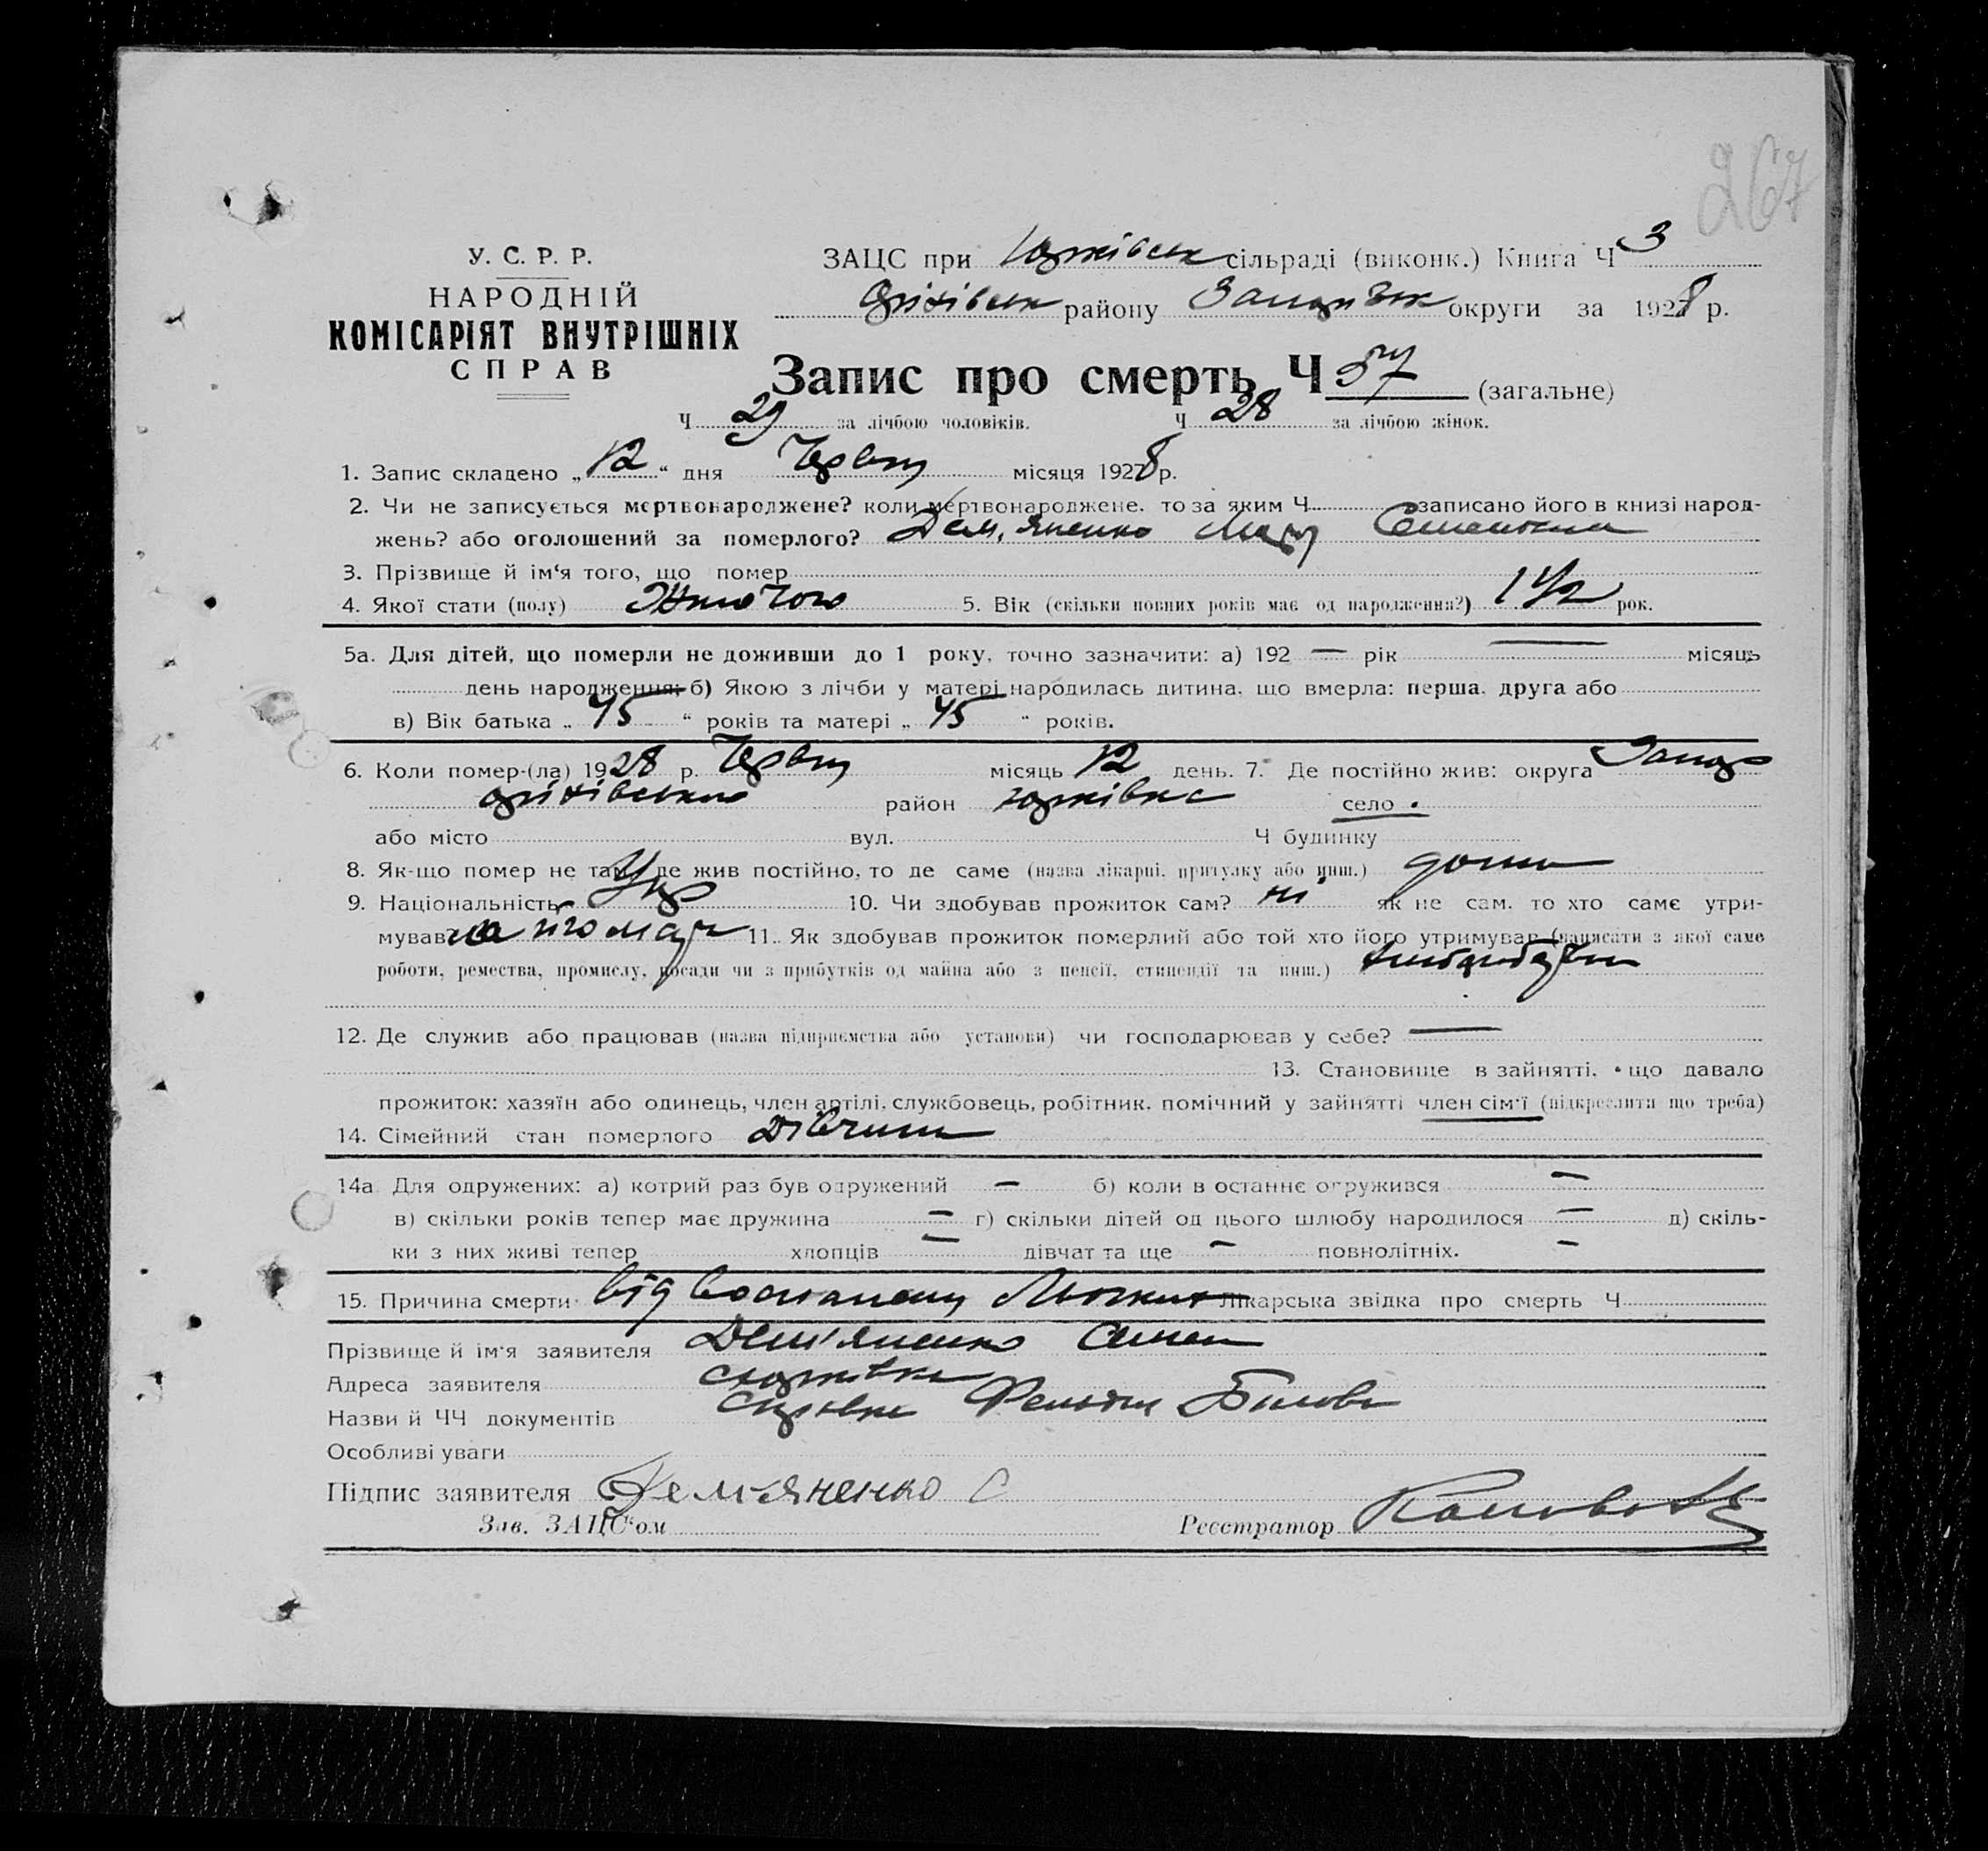 267
У. С. Р. Р.
НАРОДНІЙ
КОМІСАРІЯТ ВНУТРІШНІХ
СПРАВ
ЗАЦС при Юрківськ сільраді (виконк.) Книга Ч 3
Оріхівськ району Запоріжж округи за 1928 р.
Запис про смерть Ч 57 (загальне)
Ч 29 за лічбою чоловіків. Ч 28 за лічбою жінок.
1. Запис складено „ 12 “ дня Червня місяця 1928 р.
2. Чи не записується мертвонароджене? коли мертвонароджене, то за яким Ч записано його в книзі народ-
жень? або оголошений за померлого? Дем,яненко Семеновна
3. Прізвище й ім‘я того, що помер
4. Якої стати (полу) Жіночого 5. Вік (скільки повних років має од народження?) 1 1/2 рок.
5а. Для дітей, що померли не доживши до 1 року, точно зазначити: а) 192 — рік — місяць
день народження; б) Якою з лічби у матері народилась дитина, що вмерла: перша, друга або
в) Вік батька „ 45 “ років та матері „ 45 “ років.
6. Коли помер-(ла) 1928 р. Червня місяць 12 день. 7. Де постійно жив: округа Запор
оріхівського район Юрківка село
або місто вул. Ч будинку
8. Як-що помер не там, де жив постійно, то де саме (назва лікарні, притулку або инш.) дома
9. Національність Укр 10. Чи здобував прожиток сам? ні як не сам, то хто саме утри-
мував 11. Як здобував прожиток померлий або той хто його утримував (написати з якої саме
роботи, ремества, промислу, посади чи з прибутків од майна або з пенсії, стипендії та инш.) хліборобства
12. Де служив або працював (назва підприємства або установи) чи господарював у себе? —
13. Становище в зайнятті, що давало
прожиток: хазяїн або одинець, член артілі, службовець, робітник, помічний у зайнятті член сім‘ї (підкреслити що треба)
14. Сімейний стан померлого Дівчина
14а Для одружених: а) котрий раз був одружений — б) коли в останнє одружився —
в) скільки років тепер має дружина — г) скільки дітей од цього шлюбу народилося — д) скіль-
ки з них живі тепер хлопців — дівчат та ще — повнолітніх. —
15. Причина смерти від Лікарська звідка про смерть Ч
Прізвище й ім‘я заявителя Дем'яненко Семен
Адреса заявителя с Юрківка
Назви й ЧЧ документів Справка
Особливі уваги
Підпис заявителя Дем-яненко С
Зав. ЗАЦС‘ом Реєстратор